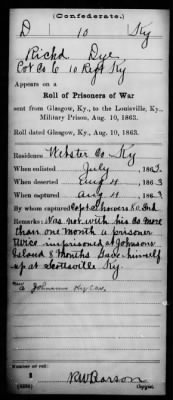 (Confederate.)
D 10 Ky
Richd Dye
Co C 10 Regt Ky
Appears on a
Roll of Prisoners of War
sent from Glasgow, Ky., to the Louisville, Ky.,
Military Prison, Aug. 10, 1863.
Roll dated Glasgow, Ky., Aug. 10, 1863.
Residence Webster Co Ky
When enlisted July, 1863
When deserted Aug 4, 1863
When captured Aug 4, 1863
By whom captured Capt Showers
Remarks: Was not with his Co more
than one month a prisoner
twice imprisoned at Johnsons
Island 8 months Gave himself
up at Scottsville Ky.
Johnsons Ky Cav.
Number of roll:
1
Copyist.